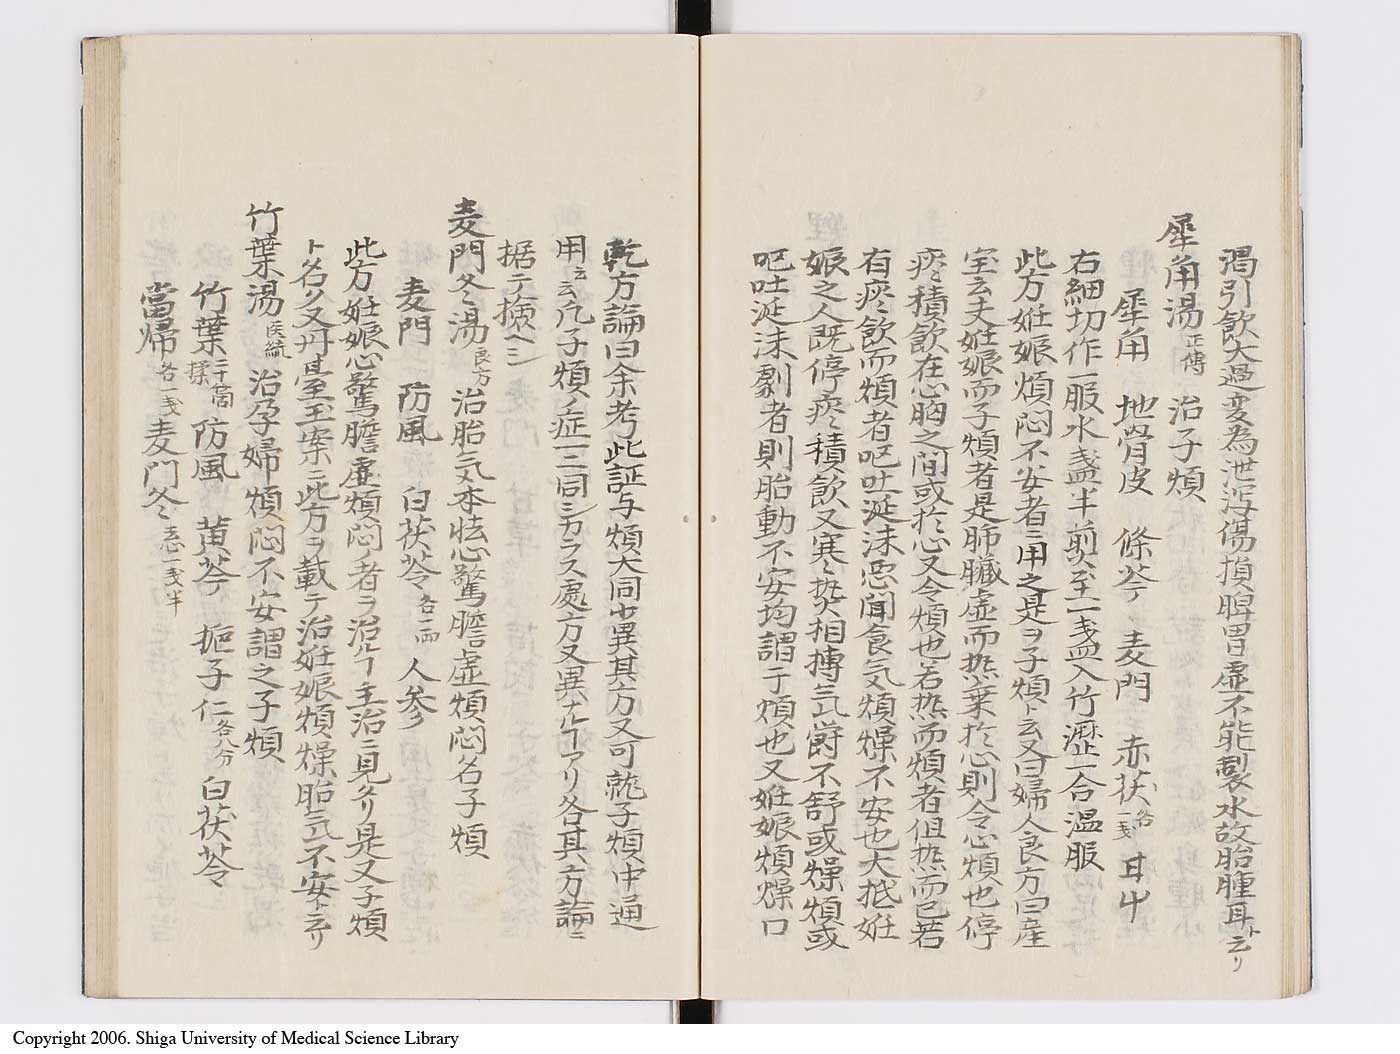 渇引飲太過変為泄瀉傷損脾胃虚不能製水故胎腫耳ト云リ
犀角湯 正傳 治子煩
犀角 地骨皮 條芩 麦門 赤茯 各一戔 耳屮
右細切作一服水盞半煎至一盞入竹瀝一合温服
此方姙娠煩悶不安者ニ用之是ヲ子煩ト云又曰婦人良方曰産
宝云夫姙娠而子煩者是肺臓虚而热葉於心則令心煩也停
痰積飲在心胸之間或於心又令煩也若热而煩者但热而已若
有痰飲而煩者呕吐涎沫恶聞食気煩燥不安也大抵姙
娠之人既停痰積飲又寒热相搏気欝不舒或燥煩或
呕吐涎沫劇者則胎動不安均謂子煩也又姙娠煩燥口
乾方論曰余考此証与煩大同少異其方又可就子煩中通
用云云凡子煩ノ症一ニ同シカラス處方又異ナルヿアリ各其方論ニ
据テ擦ヘシ
麦門冬湯 良方 治胎気本怯心驚膽虚煩悶名子煩
麦門 防風 白茯苓 各一両 人参
此方姙娠心驚膽虚煩悶ノ者ヲ治ルヿ主治ニ見タリ是又子煩
ト名ク又丹臺玉案ニ此方ヲ載テ治姙娠煩燥胎気不安ト云リ
竹葉湯 医統 治孕婦煩悶不安謂之子煩
竹葉 二十箇揉 防風 黄芩 梔子仁 各八分 白茯苓
當帰 各一戔 麦門冬 去心一戔半
Copyright 2006. Shiga University of Medical Science Library